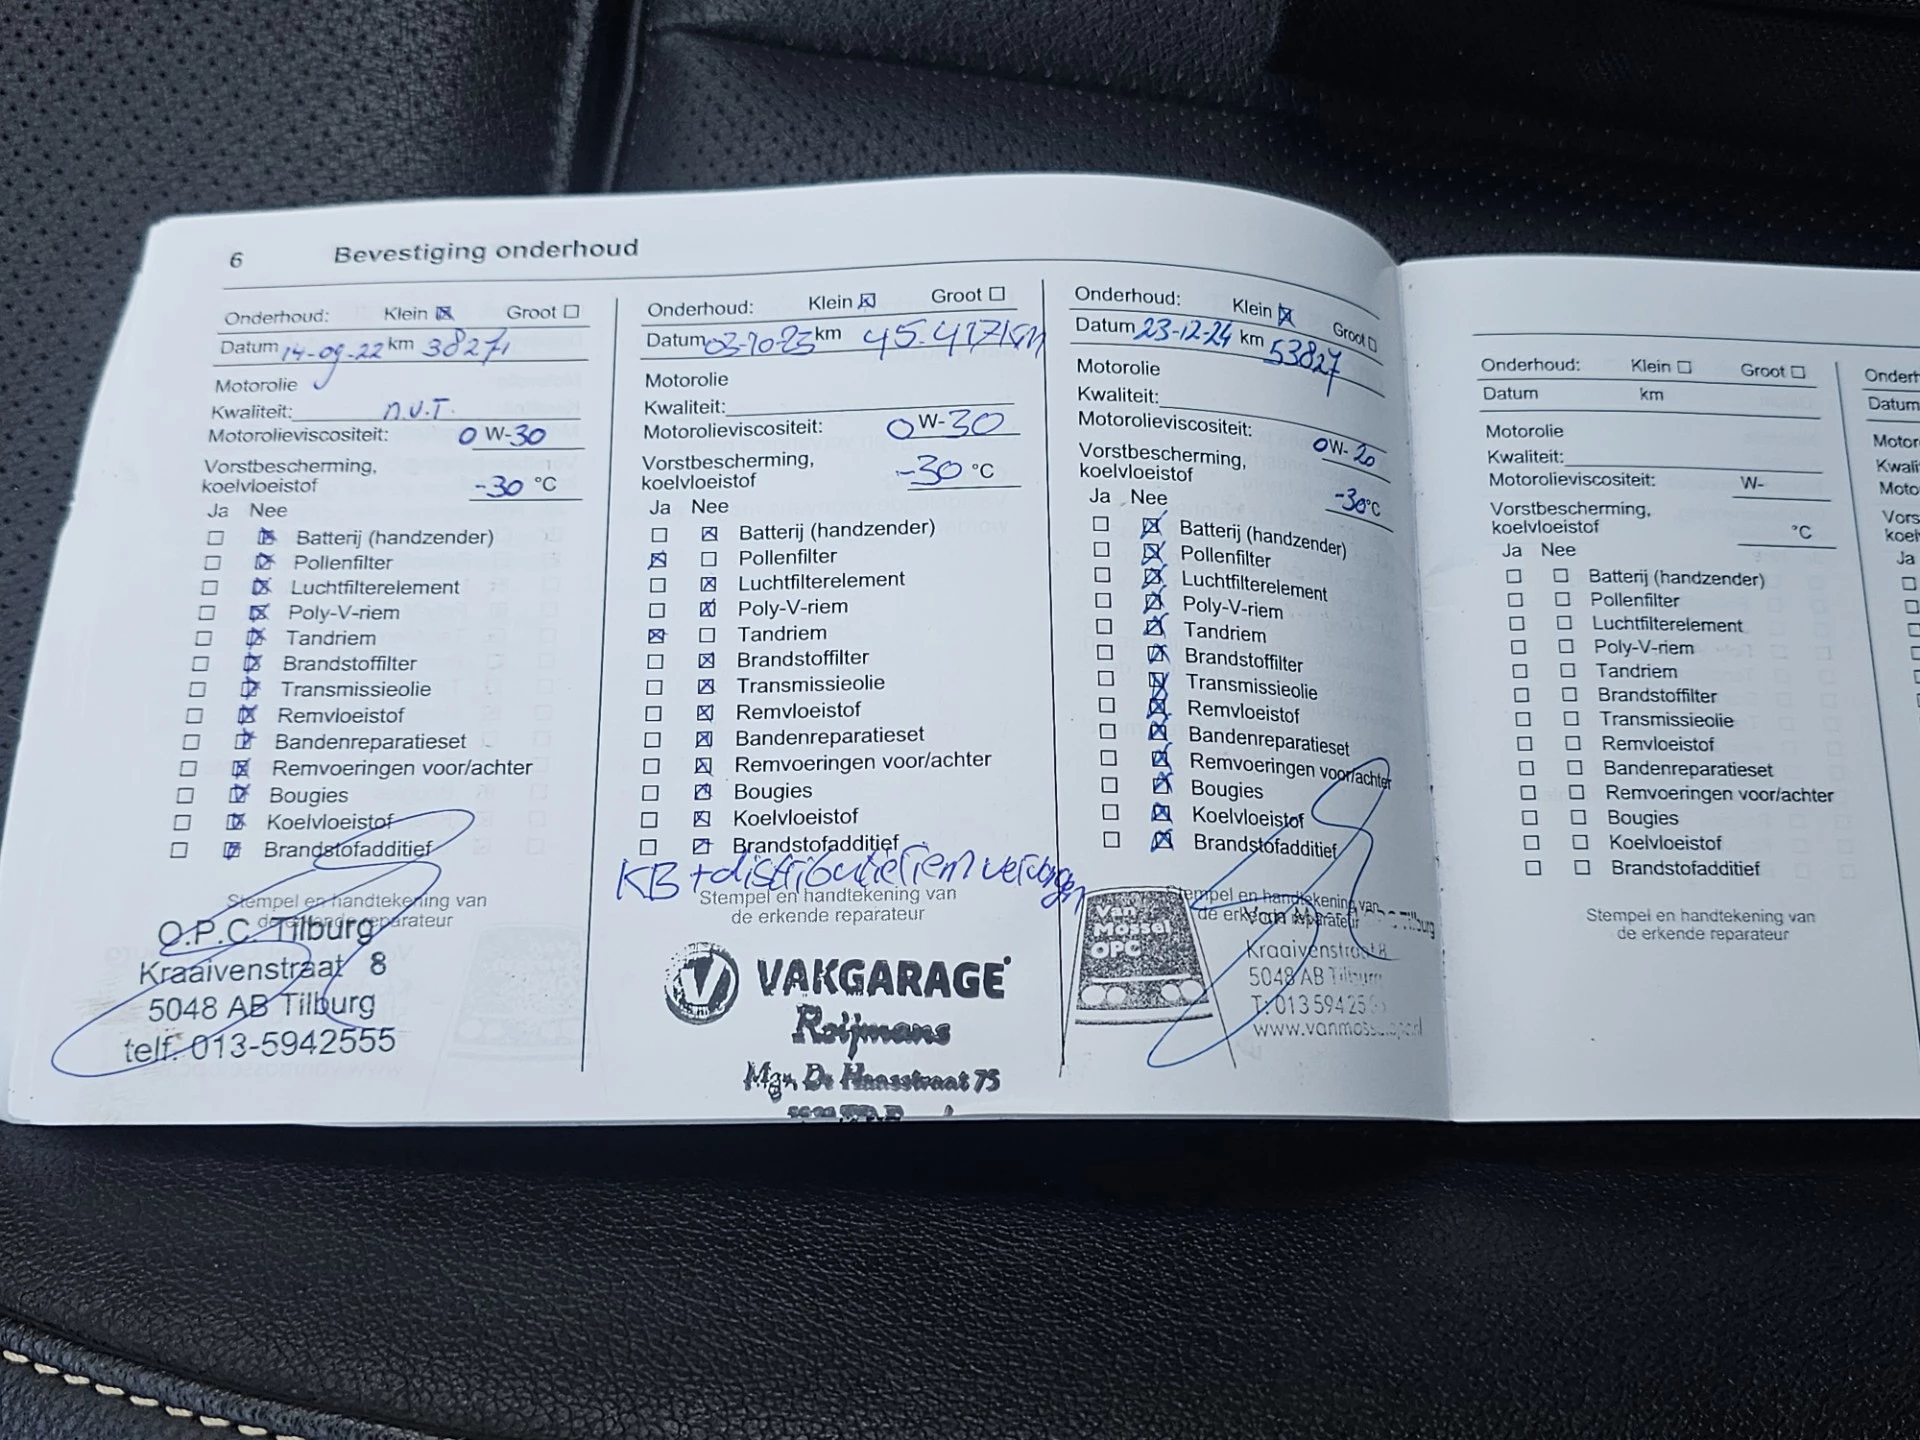 6 Bevestiging onderhoud
Onderhoud: Klein Groot
Datum 14-09-22 km 38271
Motorolie
Kwaliteit: n.v.T.
Motorolieviscositeit: 0 W-30
Vorstbescherming,
koelvloeistof -30 °C
Ja Nee
Batterij (handzender)
Pollenfilter
Luchtfilterelement
Poly-V-riem
Tandriem
Brandstoffilter
Transmissieolie
Remvloeistof
Bandenreparatieset
Remvoeringen voor/achter
Bougies
Koelvloeistof
Brandstofadditief
Stempel en handtekening van
de erkende reparateur
O.P.C. Tilburg
Kraaivenstraat 8
5048 AB Tilburg
telf. 013-5942555
Onderhoud: Klein Groot
Datum 03-10-23 km 45.417km
Motorolie
Kwaliteit:
Motorolieviscositeit: 0 W-30
Vorstbescherming,
koelvloeistof -30 °C
Ja Nee
Batterij (handzender)
Pollenfilter
Luchtfilterelement
Poly-V-riem
Tandriem
Brandstoffilter
Transmissieolie
Remvloeistof
Bandenreparatieset
Remvoeringen voor/achter
Bougies
Koelvloeistof
Brandstofadditief
KB + distributieriem vervangen
Stempel en handtekening van
de erkende reparateur
VAKGARAGE
Roijmans
Mgr. De Haasstraat 75
Onderhoud: Klein Groot
Datum 23-12-24 km 53827
Motorolie
Kwaliteit:
Motorolieviscositeit: 0W-20
Vorstbescherming,
koelvloeistof -30°C
Ja Nee
Batterij (handzender)
Pollenfilter
Luchtfilterelement
Poly-V-riem
Tandriem
Brandstoffilter
Transmissieolie
Remvloeistof
Bandenreparatieset
Remvoeringen voor/achter
Bougies
Koelvloeistof
Brandstofadditief
Stempel en handtekening van
de erkende reparateur
Van
Mossel
OPC
Van Tilburg
Kraaivenstraat 8
5048 AB Tilburg
T: 013 59425
www.vanmosselopc.nl
Onderhoud: Klein Groot
Datum km
Motorolie
Kwaliteit:
Motorolieviscositeit: W-
Vorstbescherming,
koelvloeistof °C
Ja Nee
Batterij (handzender)
Pollenfilter
Luchtfilterelement
Poly-V-riem
Tandriem
Brandstoffilter
Transmissieolie
Remvloeistof
Bandenreparatieset
Remvoeringen voor/achter
Bougies
Koelvloeistof
Brandstofadditief
Stempel en handtekening van
de erkende reparateur
Onderh
Datum
Motor
Kwali
Moto
Vors
koel
Ja